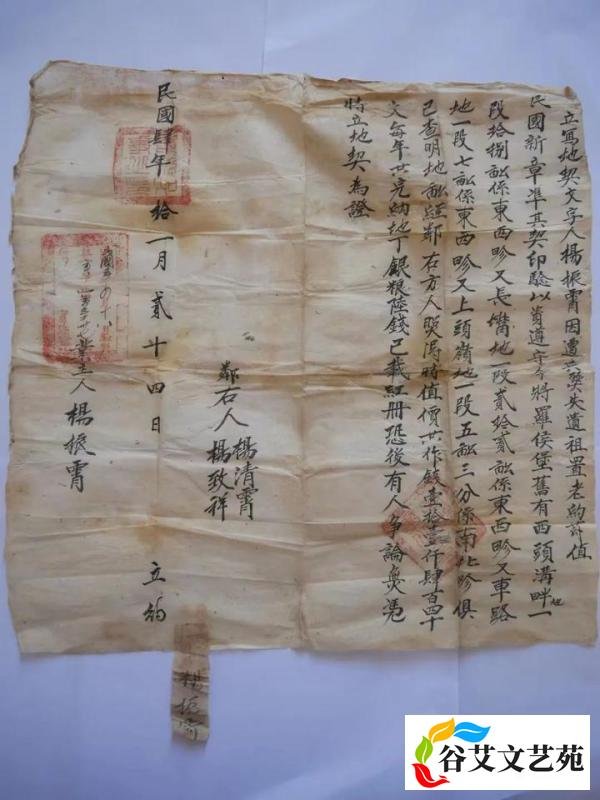 立寫地契文字人楊振霄因遭兵燹失遺祖置老約苻值
民國新章準其契印驗以資遵守今將羅侯堡舊有西頭溝畔地一
段拾捌畝係東西畛又長嘴地一段貳拾貳畝係東西畛又車路
地一段七畝係東西畛又上頭嶺地一段五畝三分係南北畛俱
已查明地畝經鄰右方人照得時值價共作錢壹拾壹仟肆百四十
文每年共完納地丁銀粮陸錢已載紅冊恐後有人爭論無憑
特立地契為證
鄰右人 楊清霄
楊致祥
民國肆年拾一月貳十四日 立約
業主人 楊振霄
楊振霄
谷艾文艺苑